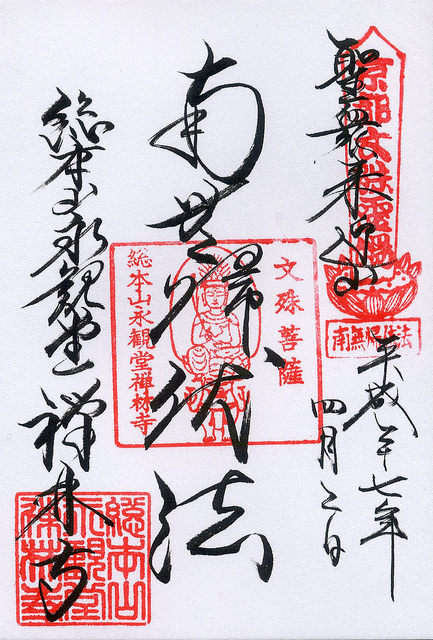 聖衆来迎山
京都文殊霊場
南無帰依法
平成十七年
四月二日
南無帰依法
文殊菩薩
総本山永觀堂禅林寺
総本山永観堂
禅林寺
総本山
永觀堂
禅林寺